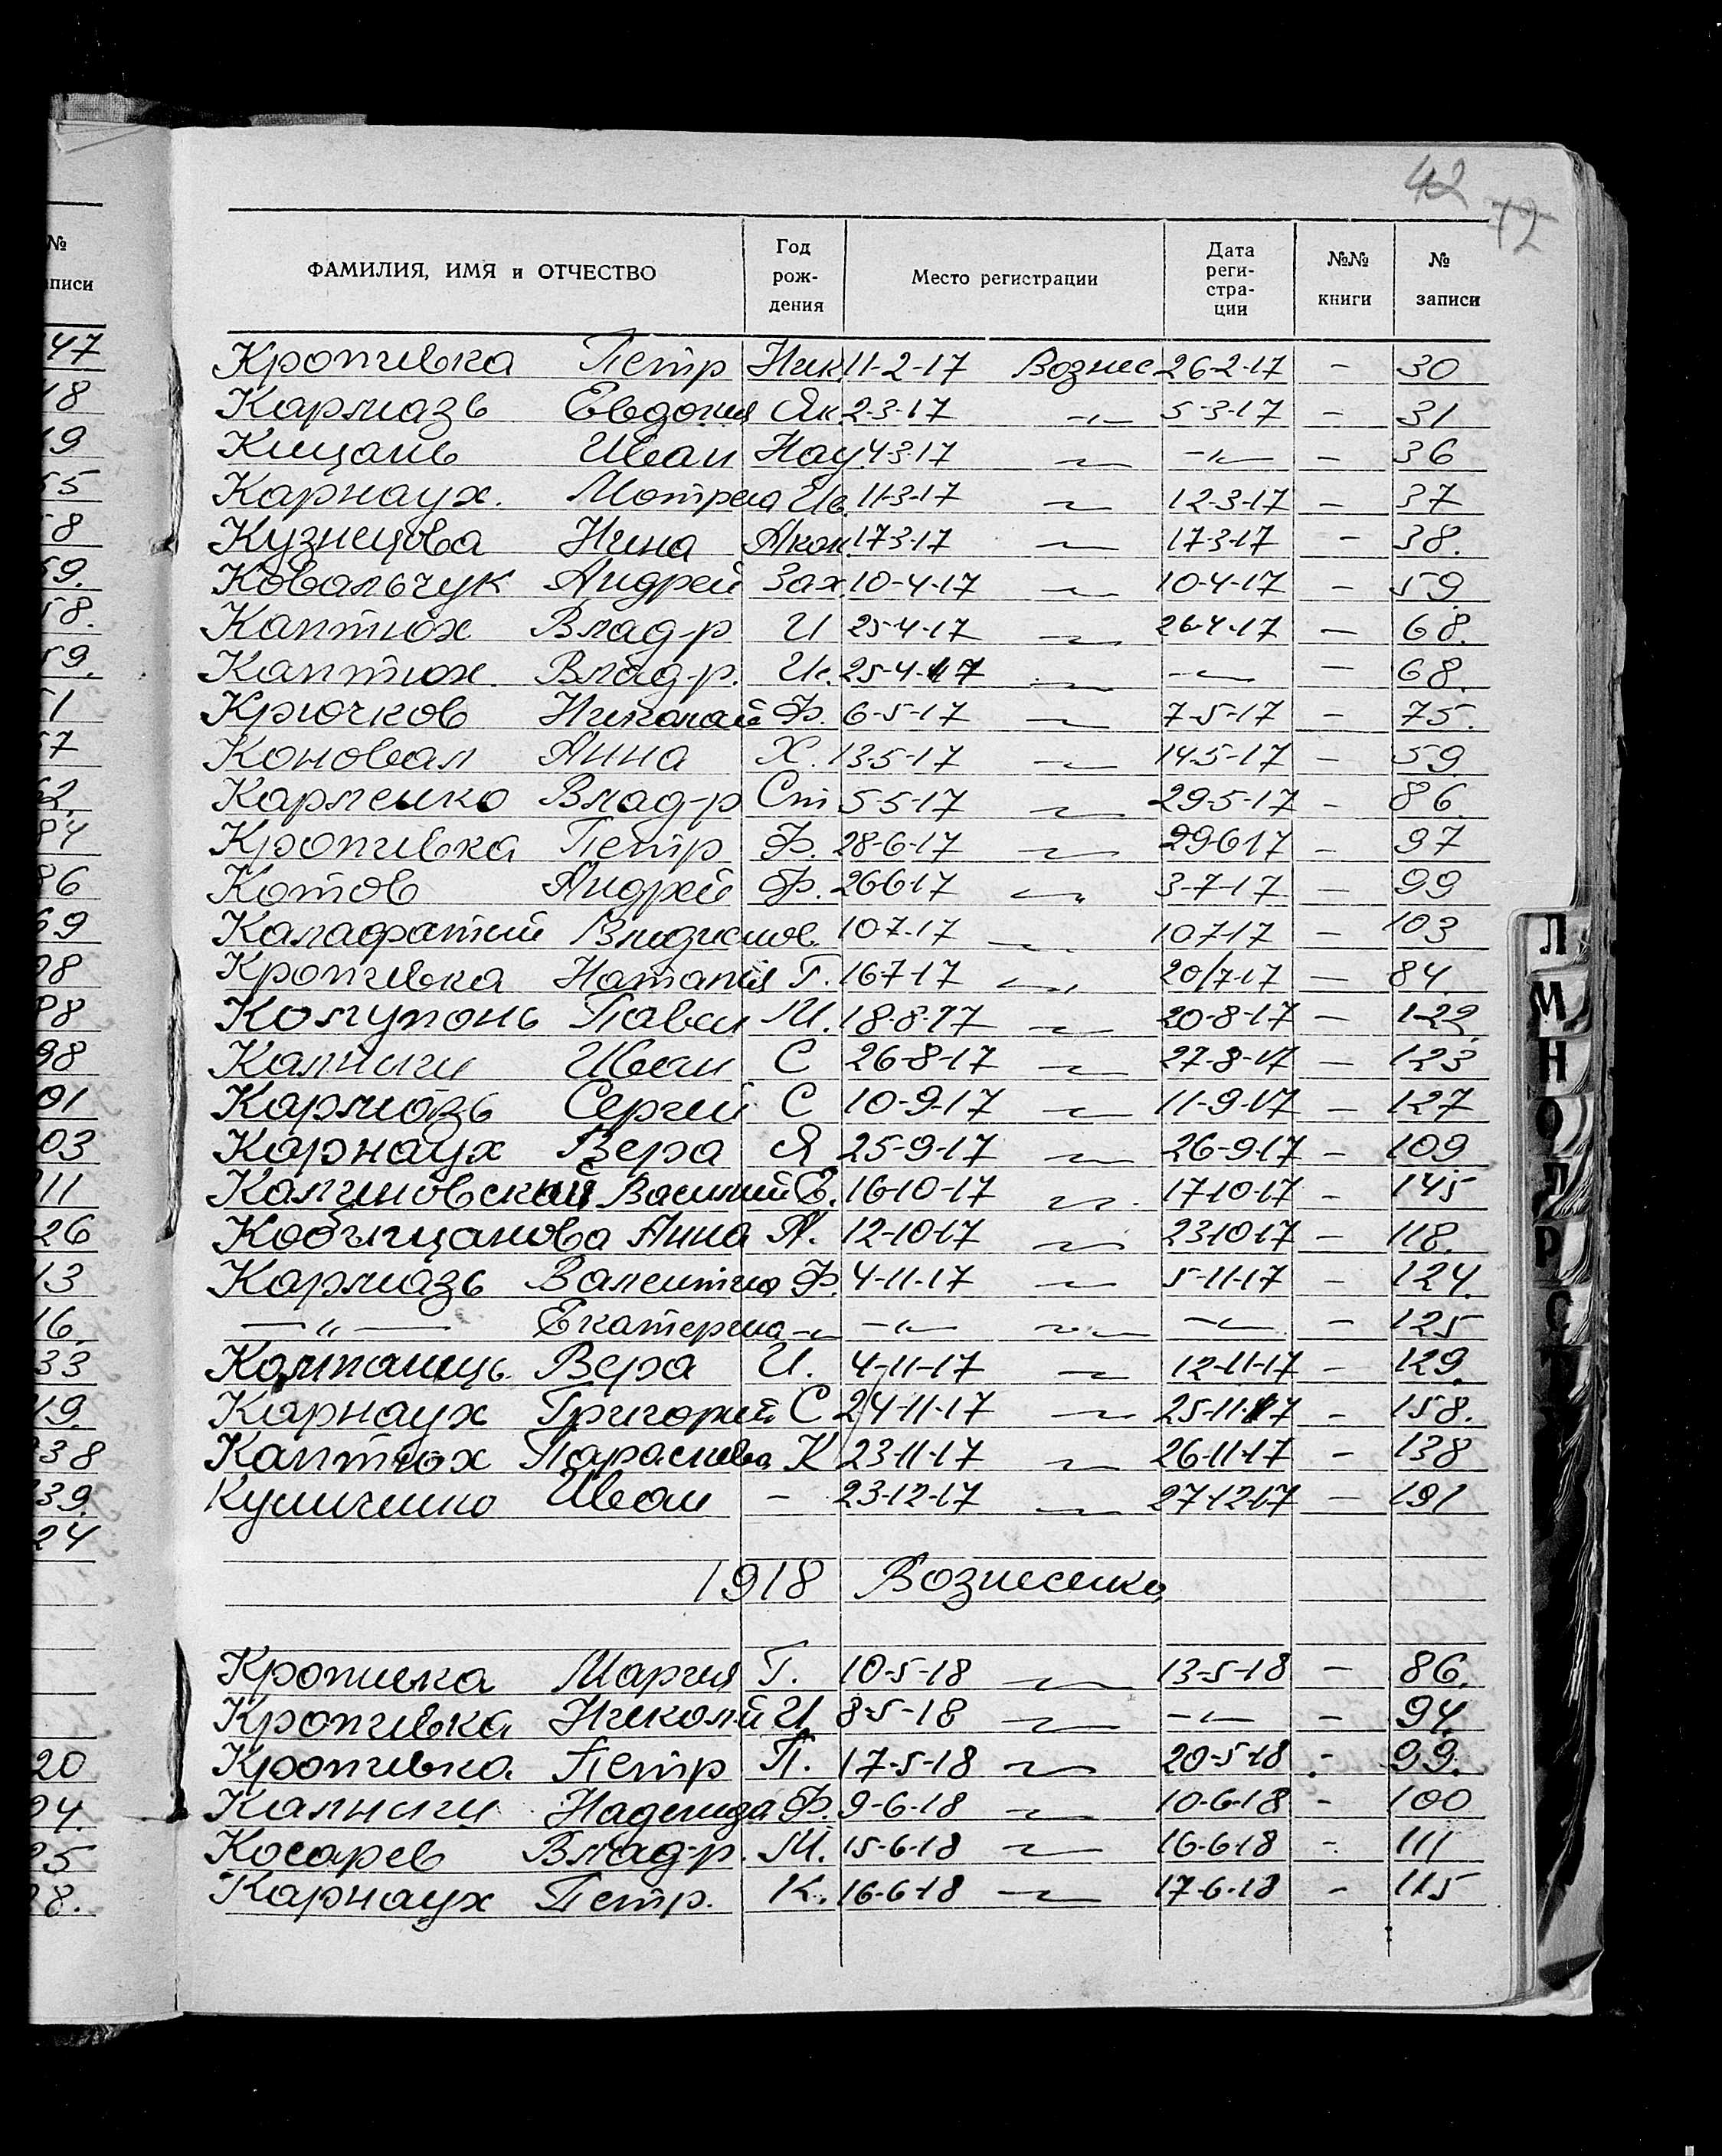 42
42
№
записи
ФАМИЛИЯ, ИМЯ и ОТЧЕСТВО Год рож- дения Место регистрации Дата реги- стра- ции №№ книги № записи
Кропивка Петр Ник. 11-2-17 Вознес 26-2-17 - 30
Кармазь Евдокия Як. 2-3-17 -"- 5-3-17 - 31
Кищань Иван Нау. 4-3-17 -"- -"- - 36
Карнаух. Мотрена Ив. 11-3-17 -"- 12-3-17 - 37
Кузнецова Нина 17-3-17 -"- 17-3-17 - 38.
Ковальчук Андрей Зах. 10-4-17 -"- 10-4-17 - 59
Каптюх Влад-р И 25-4-17 -"- 26-4-17 - 68.
Каптюх Влад-р. Ив. 25-4-17 -"- -"- - 68.
Крючков Николай Ф. 6-5-17 -"- 7-5-17 - 75.
Коновал Анна Х. 13-5-17 -"- 14-5-17 - 59
Карпенко Влад-р Ст 5-5-17 -"- 29-5-17 - 86
Кропивка Петр Ф. 28-6-17 -"- 29-6-17 - 97
Котов Андрей Ф. 26-6-17 -"- 3-7-17 - 99
Калафатий 10-7-17 -"- 10-7-17 - 103
Кропивка Наталия Г. 16-7-17 -"- 20/7-17 - 84
Колупонь Павел М. 18-8-17 -"- 20-8-17 - 122
Калныш Иван С 26-8-17 -"- 27-8-17 - 123
Кармазь Сергей С 10-9-17 -"- 11-9-17 - 127
Карнаух Вера Я 25-9-17 -"- 26-9-17 - 109
Калиновский Василий Е. 16-10-17 -"- 17-10-17 - 145
Кобылицанова Анна А. 12-10-17 -"- 23-10-17 - 118.
Кармазь Валентина Ф. 4-11-17 -"- 5-11-17 - 124.
-"- Екатерина -"- -"- -"- -"- - 125
Компаниць. Вера И. 4-11-17 -"- 12-11-17 - 129.
Карнаух Григорий С 24-11-17 -"- 25-11-17 - 158.
Каптюх Параскева К 23-11-17 -"- 26-11-17 - 138
Иван - 23-12-17 -"- 27-12-17 - 191
1918 Вознесенка
Кропивка Мария Г. 10-5-18 -"- 13-5-18 - 86.
Кропивка Николай И 8-5-18 -"- -"- - 94.
Кропивка Петр П. 17-5-18 -"- 20-5-18 - 99.
Калныш Надежда Ф. 9-6-18 -"- 10-6-18 - 100
Косарев Влад-р. М. 15-6-18 -"- 16-6-18 - 111
Карнаух Петр. К. 16-6-18 -"- 17-6-18 - 115
Л
М
Н
О
П
Р
С
Т